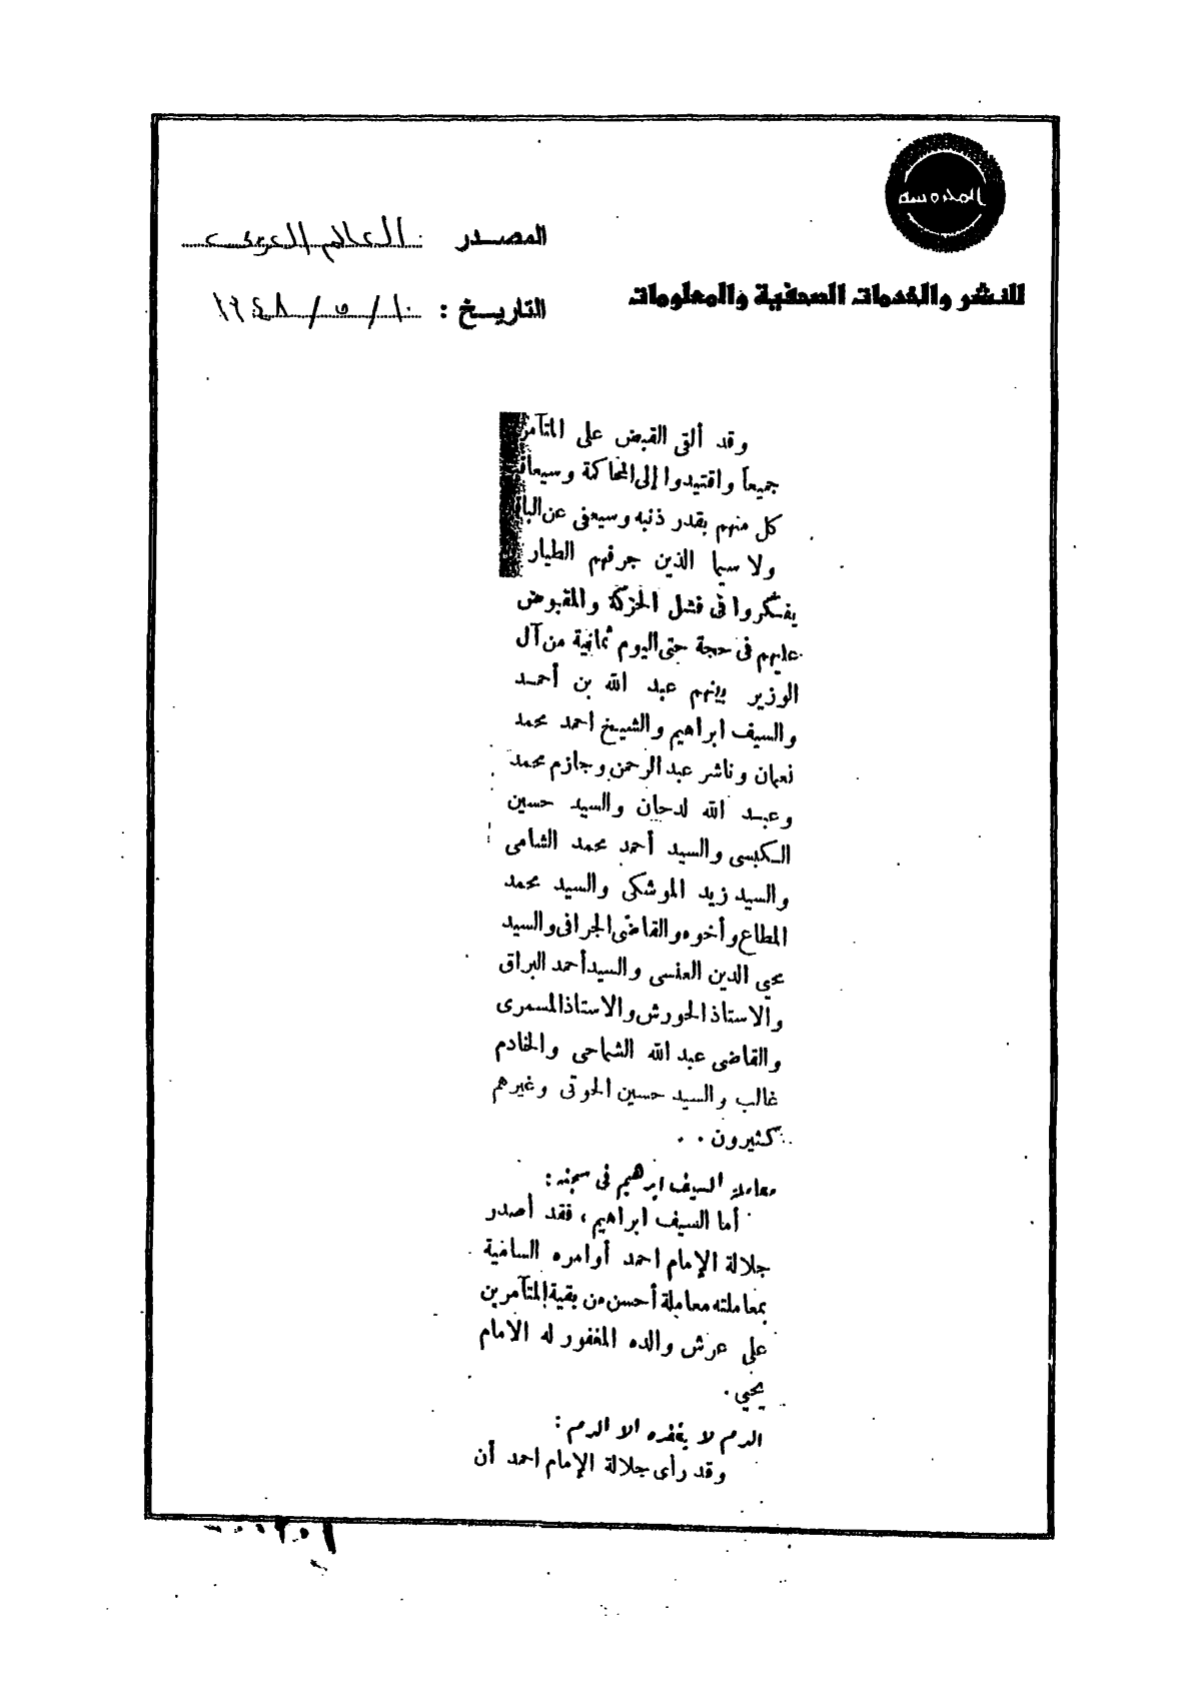 المصدر العالم العربي
للنشر والخدمات الصحفية والمعلومات
التاريخ : ١٠ / ٥ / ١٩٤٨
وقد ألقى القبض على المتآمر
جميعاً واقتيدوا إلى المحاكمة وسيعاق
كل منهم بقدر ذنبه وسيعفى عن البا
ولا سيما الذين جرفهم الطيار
يفكروا فى فشل الحركة والمقبوض
عليهم فى حجة حتى اليوم ثمانية من آل
الوزير بينهم عبد الله بن أحمد
والسيف ابراهيم والشيخ احمد محمد
نعمان وناشر عبد الرحمن وجازم محمد
وعبد الله لدحان والسيد حسين
الكبسى والسيد أحمد محمد الشامى
والسيد زيد الموشكى والسيد محمد
المطاع وأخوه والقاضى الجرافى والسيد
محي الدين العنسى والسيد أحمد البراق
والاستاذ الحورش والاستاذ المسمرى
والقاضى عبد الله الشماحى والخادم
غالب والسيد حسين الحوتى وغيرهم
كثيرون . .
معاملة السيف ابرهيم فى سجنه :
أما السيف ابراهيم ، فقد أصدر
جلالة الإمام احمد أوامره السامية
بمعاملته معاملة أحسن من بقية المتآمرين
على عرش والده المغفور له الامام
يحيي .
الدم لا يغفره الا الدم :
وقد رأى جلالة الإمام احمد أن